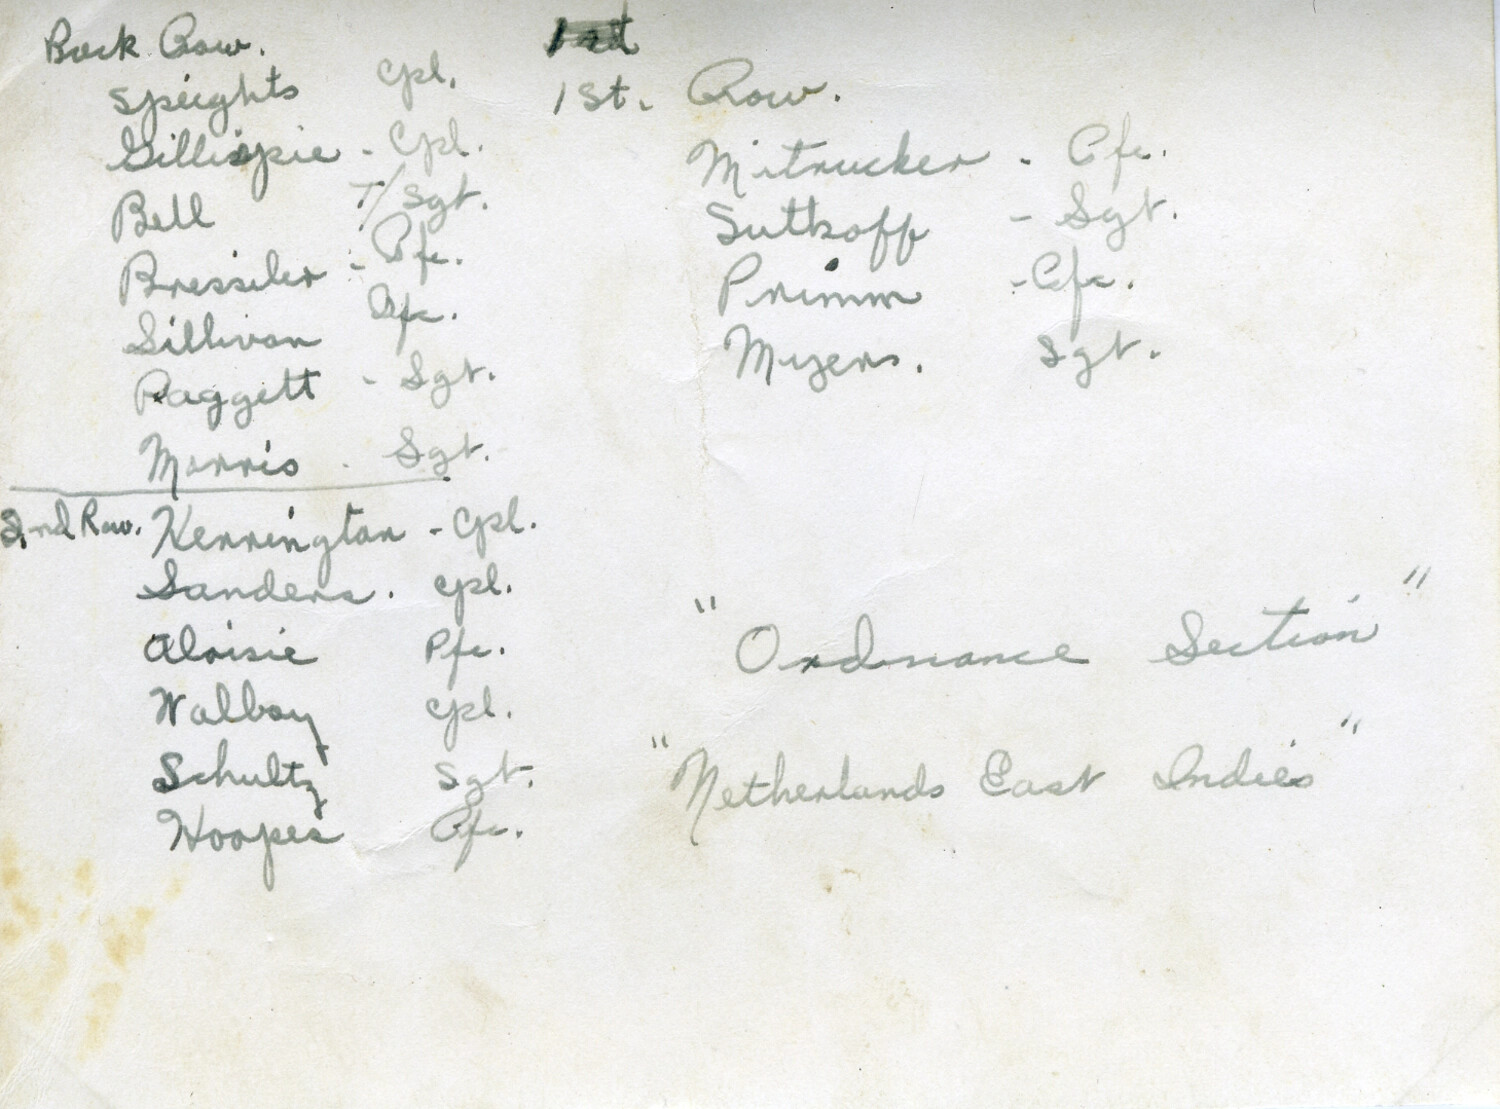 Back Row.
Speights Cpl.
Gillispie - Cpl.
Bell T/Sgt.
Bressiler - Pfc.
Sillivan Pfc.
Paggett - Sgt.
Morris - Sgt.
2nd Row. Kerrington - Cpl.
Sanders. Cpl.
Aloisie Pfc.
Walboy Cpl.
Schultz Sgt.
Hoopes Pfc.
1st. Row.
Mitrucker - Pfc.
Sutkoff - Sgt.
Primm - Pfc.
Myers. Sgt.
"Ordnance Section"
"Netherlands East Indies"